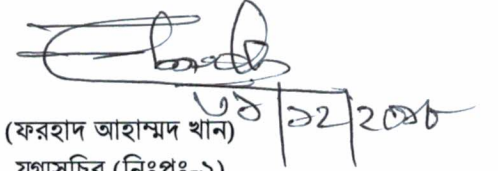 ৩১|১২|২০১৮
(ফরহাদ আহাম্মদ খান)
যুগ্মসচিব (নিঃপ্রঃ-১)